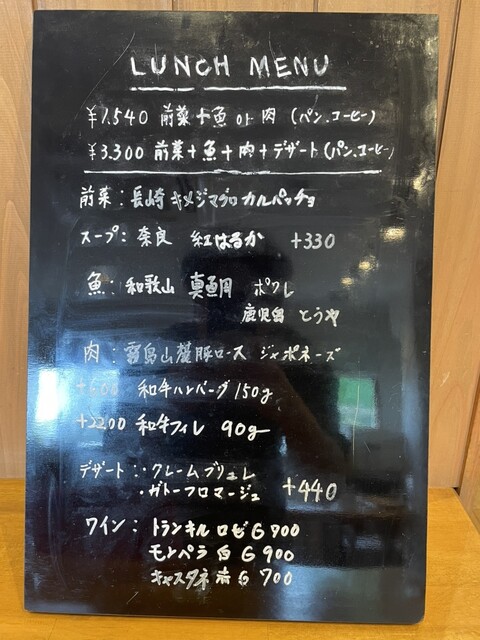 LUNCH MENU
¥1.540 前菜+魚 or 肉 (パン.コーヒー)
¥3.300 前菜+魚+肉+デザート(パン.コーヒー)
前菜:長崎 キメジマグロ カルパッチョ
スープ:奈良 紅はるか +330
魚:和歌山 真鯛 ポワレ
鹿児島 とうや
肉:霧島山麓豚ロース ジャポネーズ
+600 和牛ハンバーグ 150g
+2200 和牛フィレ 90g
デザート:・クレームブリュレ
・ガトーフロマージュ +440
ワイン:トランキル ロゼ G 900
モンペラ 白 G 900
キャスタネ 赤 G 700